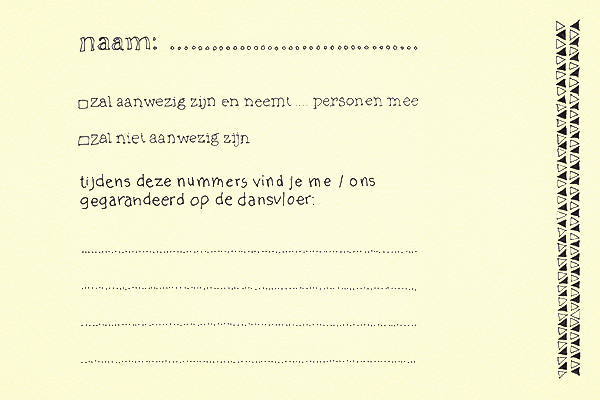 naam: ..................................
□ zal aanwezig zijn en neemt .... personen mee
□ zal niet aanwezig zijn
tijdens deze nummers vind je me / ons
gegarandeerd op de dansvloer: